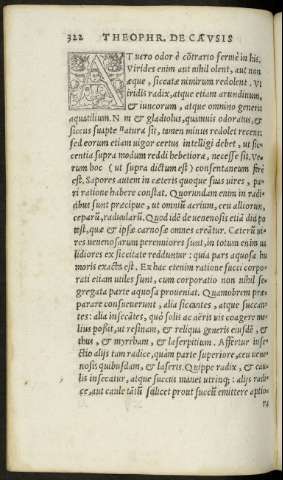 322 THEOPHR. DE CAVSIS
AT uero odor è cõtrario fermè in his.
Virides enim aut nihil olent, aut non
æque, siccatæ nimirum redolent. Vi
iridis radix, atque etiam arundinum,
& iuncorum, atque omnino generis
aquatilium. Nam & gladiolus, quamuis odoratus, &
siccus suapte natura sit, tamen minus redolet recens:
sed eorum etiam uigor certus intelligi debet, ut sic-
centia supra modum reddi hebetiora, necesse sit. Ve-
rum hoc (ut supra dictum est) consentaneum ferè
est. Sapores autem in cæteris quoque suas uires, pa-
ri ratione habere constat. Quorundam enim in radi-
cibus sunt præcipuæ, ut omniũ aerium, ceu alliorum,
ceparũ, radicularũ. Quod idẽ de uenenosis etiã dici po
test, quæ & ipsæ carnosæ omnes creãtur. Cæterũ ui-
res uenenosarum perenniores sunt, in totum enim ua
lidiores ex siccitate redduntur: quia pars aquosa hu
moris exacta est. Ex hac etenim ratione succi corpo-
rati etiam utiles sunt, cum corporatio non nihil se-
gregata parte aquosa proueniat. Quamobrem præ-
parare consueuerunt, alia siccantes, atque succan-
tes: alia insecãtes, quò solis ac aëris uis coagere me-
lius possit, ut resinam, & reliqua generis eiusdẽ, &
thus, & myrrham, & laserpitium. Affertur inse-
ctio alijs tam radice, quàm parte superiore, ceu uene
nosis quibusdam, & laseri. Quippe radix, & cau-
lis insecatur, atque succus manet utrinq;: alijs radi-
ce, aut caule tãtũ scilicet prout succũ emittere aptio-
ra